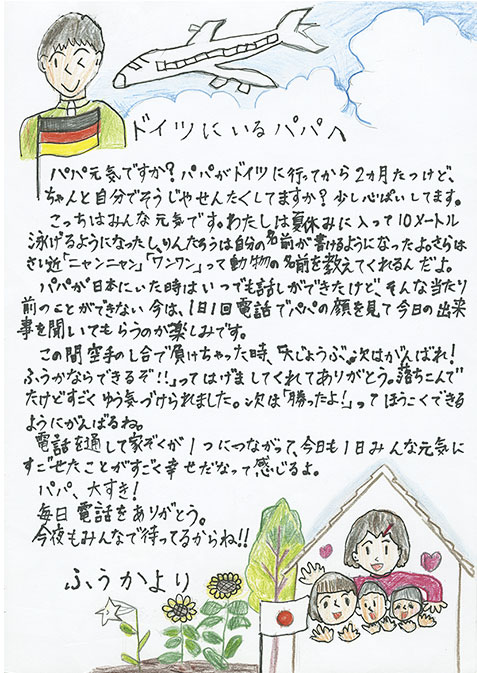 ドイツにいるパパへ
パパ元気ですか?パパがドイツに行ってから2ヵ月たつけど、
ちゃんと自分でそうじやせんたくしてますか?少し心ぱいしてます。
こっちはみんな元気です。わたしは夏休みに入って10メートル
泳げるようになったし、りんたろうは自分の名前が書けるようになったよ。さらは
さい近「ニャンニャン」「ワンワン」って動物の名前を教えてくれるんだよ。
パパが日本にいた時はいつでも話しができたけど、そんな当たり
前のことができない今は、1日1回電話でパパの顔を見て今日の出来
事を聞いてもらうのが楽しみです。
この間空手のし合で負けちゃった時、「大じょうぶ。次はがんばれ!
ふうかならできるぞ!!」ってはげましてくれてありがとう。落ちこんで
たけどすごくゆう気づけられました。次は「勝ったよ!」ってほうこくできる
ようにがんばるね。
電話を通して家ぞくが1つにつながって、今日も1日みんな元気に
すごせたことがすごく幸せだなって感じるよ。
パパ、大すき!
毎日電話をありがとう。
今夜もみんなで待ってるからね!!
ふうかより